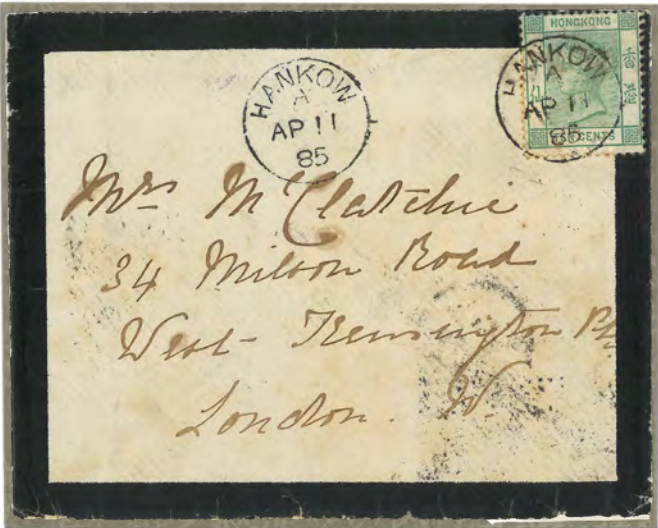 HONGKONG
CENTS
HANKOW
A
AP 11
85
HANKOW
A
AP 11
85
Mrs McClatchie
34 Milson Road
West Kensington Pk
London. W.